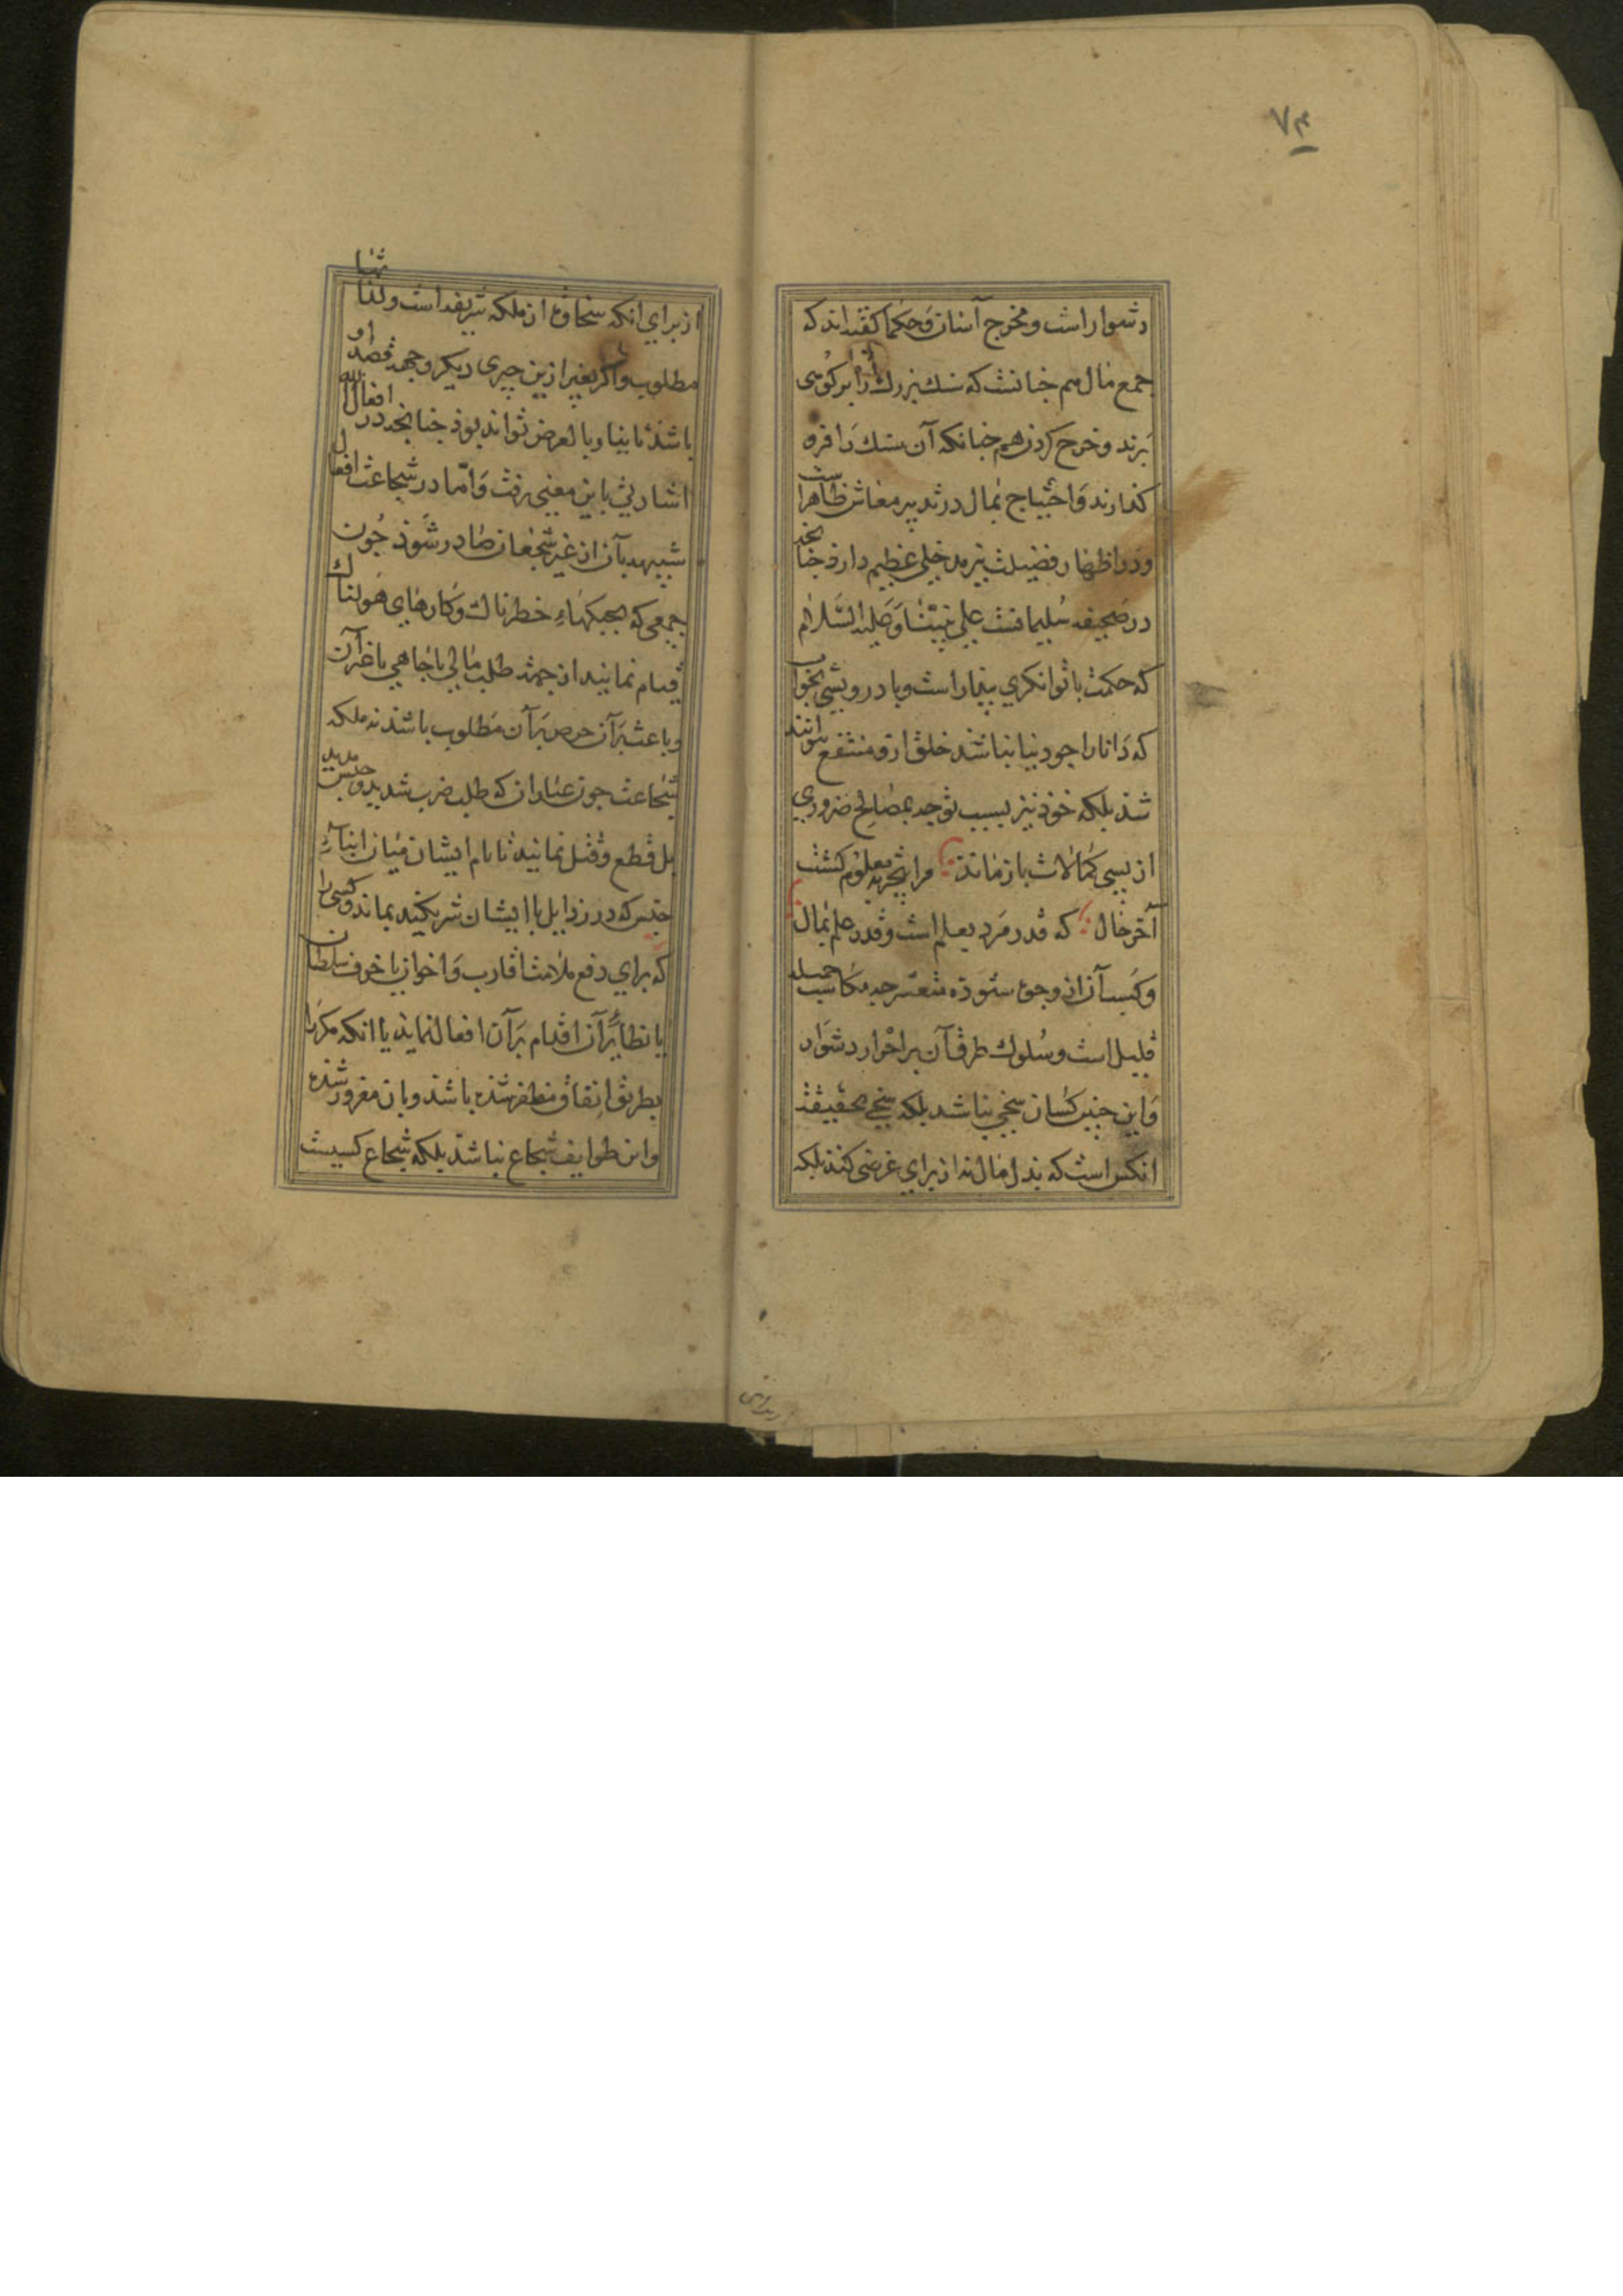 ۷۴
دشوار است و مخرج آسان و حکما کفته‌اند که
جمع مال هم چنانست که سنک بزرک را بر کوهی
برند و خرج کردن هم چنانکه آن سنک را فرو
کذارند و احتیاج بمال در تدبیر معاش ظاهراست
و در اظهار فضیلت نیز مدخلی عظیم دارد چنانچه
در صحیفه سلیمانست علی نبینا و علیه السلام
که حکمت با توانکری بیدار است و با درویشی بخواب
که دانا را جو دنیا نباشد خلق ازو منتفع نتوانند
شد بلکه خود نیز بسبب توجه بمصالح ضروری
از بسی کمالات باز ماند مرا بتجربه معلوم کشت
آخر حال که قدر مرد بعلم است و قدر علم بمال
و کسب آن از وجوه ستوده متعسر چه مکاسب جمیله
قلیل است و سلوک طرق آن بر احرار دشوار
و این چنین کسان سخی نباشد بلکه سخی بحقیقت
انکس است که بذل مال نه از برای غرضی کند بلکه
از برای انکه سخاوت از ملکه شریفه است ولذاتها
مطلوب و اکر بغیر ازین چیزی دیکر وجهه قصد او
باشد ثانیا و بالعرض تواند بود چنانچه در افعال الله
اشارتی باین معنی رفت و اما در شجاعت افعال
شبیه بآن از غیر شجعان صادر شود چون
جمعی که بجنکهاء خطرناک و کارهای هولناک
قیام نمایند از جهت طلب مالی یا جاهی یا غیر آن
و باعث بر آن حرص بر آن مطلوب باشد نه ملکه
شجاعت چون عیاران که طلب ضرب شدید و حبس مدید
بل قطع و قتل نمایند تا نام ایشان میان ابناء
جنس که در رذایل با ایشان شریکند بماند و کسی را
که برای دفع ملامت اقارب و اخوان یا خوف سلطان
یا نظایر آن اقدام بر آن افعال نماید یا انکه مکررا
بطریق اتفاق مظفر شده باشد و بان مغرور شده
و این طوایف شجاع نباشد بلکه شجاع کسیست